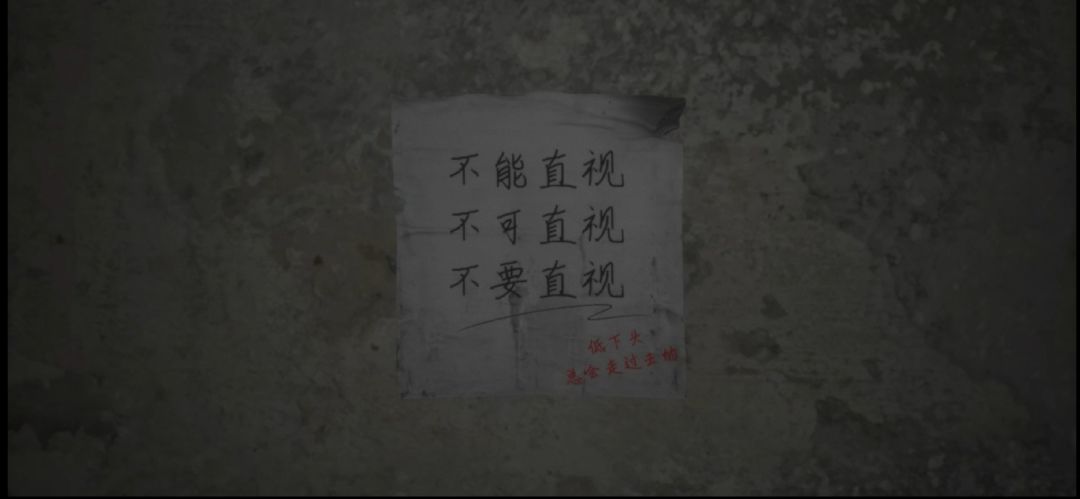 不能直视
不可直视
不要直视
低下头
总会走过去的